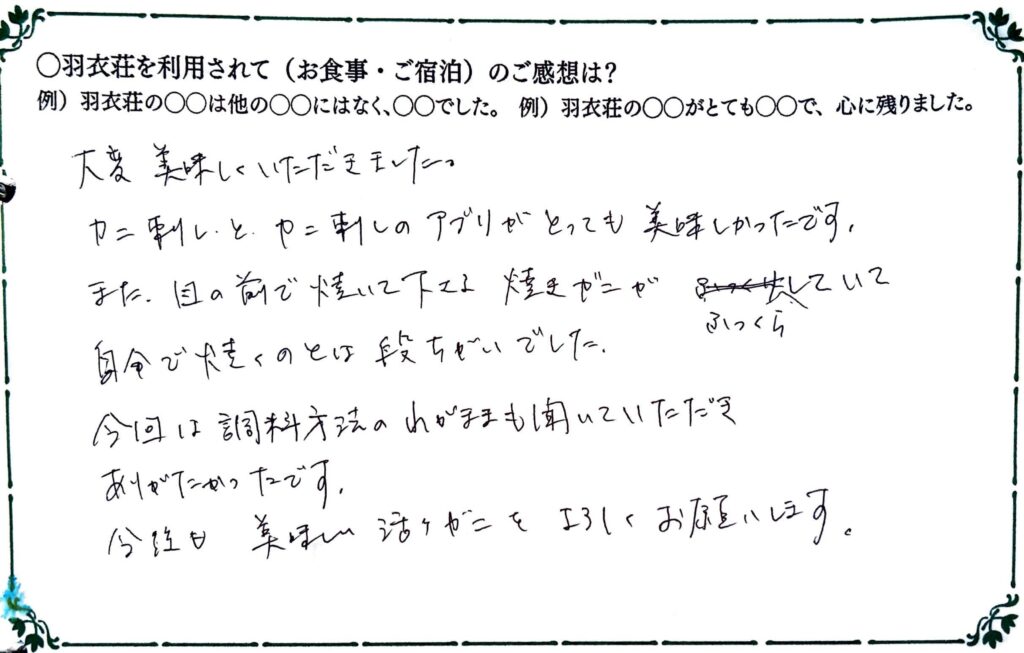 〇羽衣荘を利用されて（お食事・ご宿泊）のご感想は？
例）羽衣荘の〇〇は他の〇〇にはなく、〇〇でした。 例）羽衣荘の〇〇がとても〇〇で、心に残りました。
大変 美味しくいただきました。
カニ刺しと、カニ刺しのアブリがとっても美味しかったです。
また、目の前で焼いて下さる 焼きガニが していて
ふっくら
自分で焼くのとは段ちがいでした。
今回は調料方法のわがままも聞いていただき
ありがたかったです。
今後も 美味しい 活ケガニを よろしくお願いします。